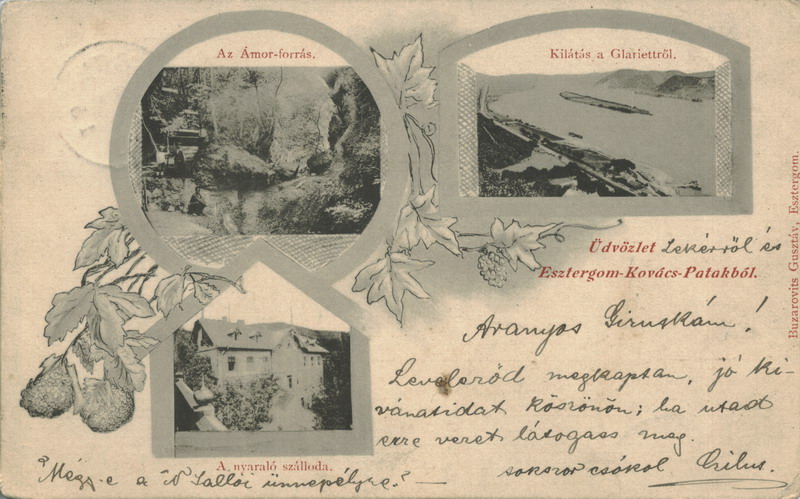 Az Ámor-forrás.
Kilátás a Glariettről.
Üdvözlet Lekérről és
Esztergom-Kovács-Patakból.
Buzarovits Gusztáv, Esztergom.
Aranyos Giruskám!
Leveleződ megkaptam, jó ki-
vánatidat köszönöm; ha utad
erre veret látogass meg.
sokszor csókol
A nyaraló szálloda.
"Mégy-e a "N Sallói ünnepélyre?" —